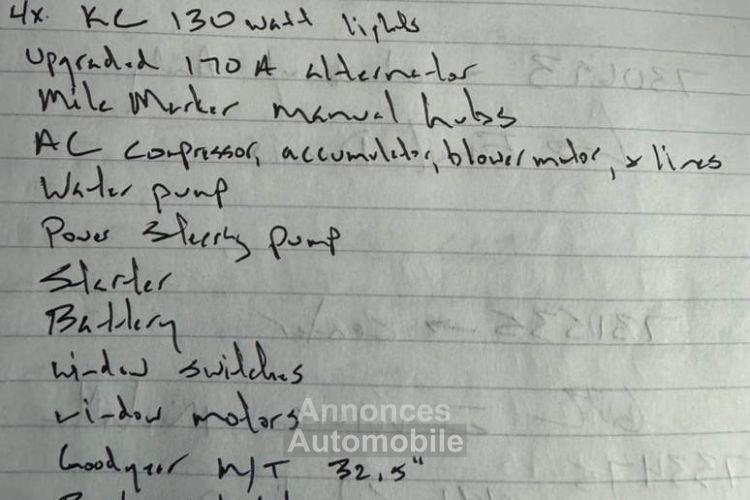 4x. KC 130 watt lights
Upgraded 170 A alternator
Mile Marker manual hubs
AC compressor, accumulator, blower motor, & lines
Water pump
Power Steering pump
Starter
Battery
window switches
window motors
Annonces
Automobile
Goodyear M/T 32,5"